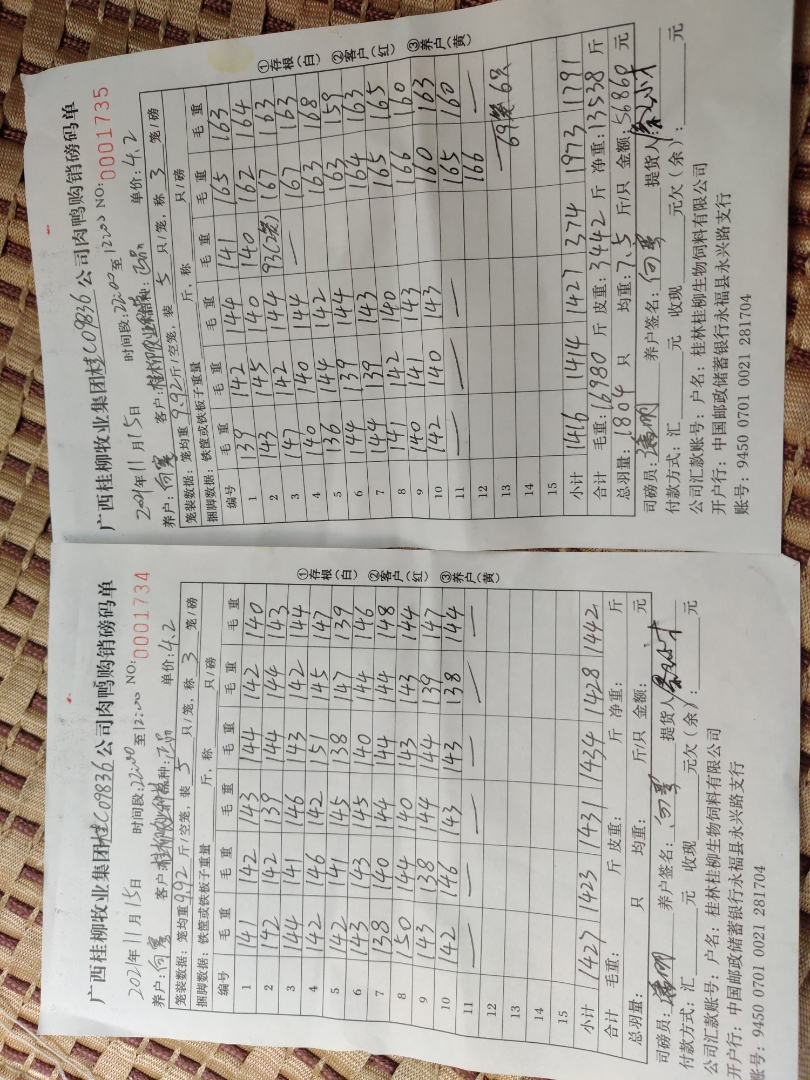 广西桂柳牧业集团桂C09836公司肉鸭购销磅码单
2021年11月15日 时间段:22:00至12:00 NO: 0001734
养户:向 客户: 品种:正品 单价:4.2
笼装数据: 笼均重9.92斤/空笼, 装5只/笼, 称3笼/磅
捆脚数据: 铁筐或铁板子重量 斤, 称 只/磅
编号 毛重 毛重 毛重 毛重 毛重 毛重
1 141 142 143 144 142 140
2 142 142 139 144 144 143
3 144 141 146 143 142 144
4 142 146 142 151 145 147
5 142 141 145 138 147 139
6 143 143 145 140 144 146
7 138 140 144 144 144 148
8 150 144 140 143 143 144
9 143 138 144 144 139 147
10 142 146 143 143 138 144
11 — — — — — —
12
13
14
15
小计 1427 1423 1431 1434 1428 1442
合计 毛重: 斤 皮重: 斤 净重: 斤
总羽量: 只 均重: 斤/只 金额: 元
司磅员: 养户签名:向 提货人:
付款方式: 汇 元 收现 元欠(余): 元
公司汇款账号: 户名: 桂林桂柳生物饲料有限公司
开户行: 中国邮政储蓄银行永福县永兴路支行
账号: 9450 0701 0021 281704
①存根(白) ②客户(红) ③养户(黄)
广西桂柳牧业集团桂C09836公司肉鸭购销磅码单
2021年11月15日 时间段:22:00至12:00 NO: 0001735
养户:向 客户: 品种:正品 单价:4.2
笼装数据: 笼均重9.92斤/空笼, 装5只/笼, 称3笼/磅
捆脚数据: 铁筐或铁板子重量 斤, 称 只/磅
编号 毛重 毛重 毛重 毛重 毛重 毛重
1 139 142 144 141 165 163
2 143 145 140 140 162 164
3 147 142 144 93(2笼) 167 163
4 140 140 144 — 167 163
5 136 144 142 163 168
6 144 139 144 163 159
7 144 139 143 164 163
8 141 142 140 165 165
9 140 141 143 166 160
10 142 140 143 160 163
11 — — — 165 160
12 166 —
13 — 69笼6只
14
15
小计 1416 1414 1427 374 1973 1791
合计 毛重:16980斤 皮重:3442斤 净重:13538斤
总羽量:1804只 均重:7.5斤/只 金额:56860元
司磅员: 养户签名:向 提货人:
付款方式: 汇 元 收现 元欠(余): 元
公司汇款账号: 户名: 桂林桂柳生物饲料有限公司
开户行: 中国邮政储蓄银行永福县永兴路支行
账号: 9450 0701 0021 281704
①存根(白) ②客户(红) ③养户(黄)